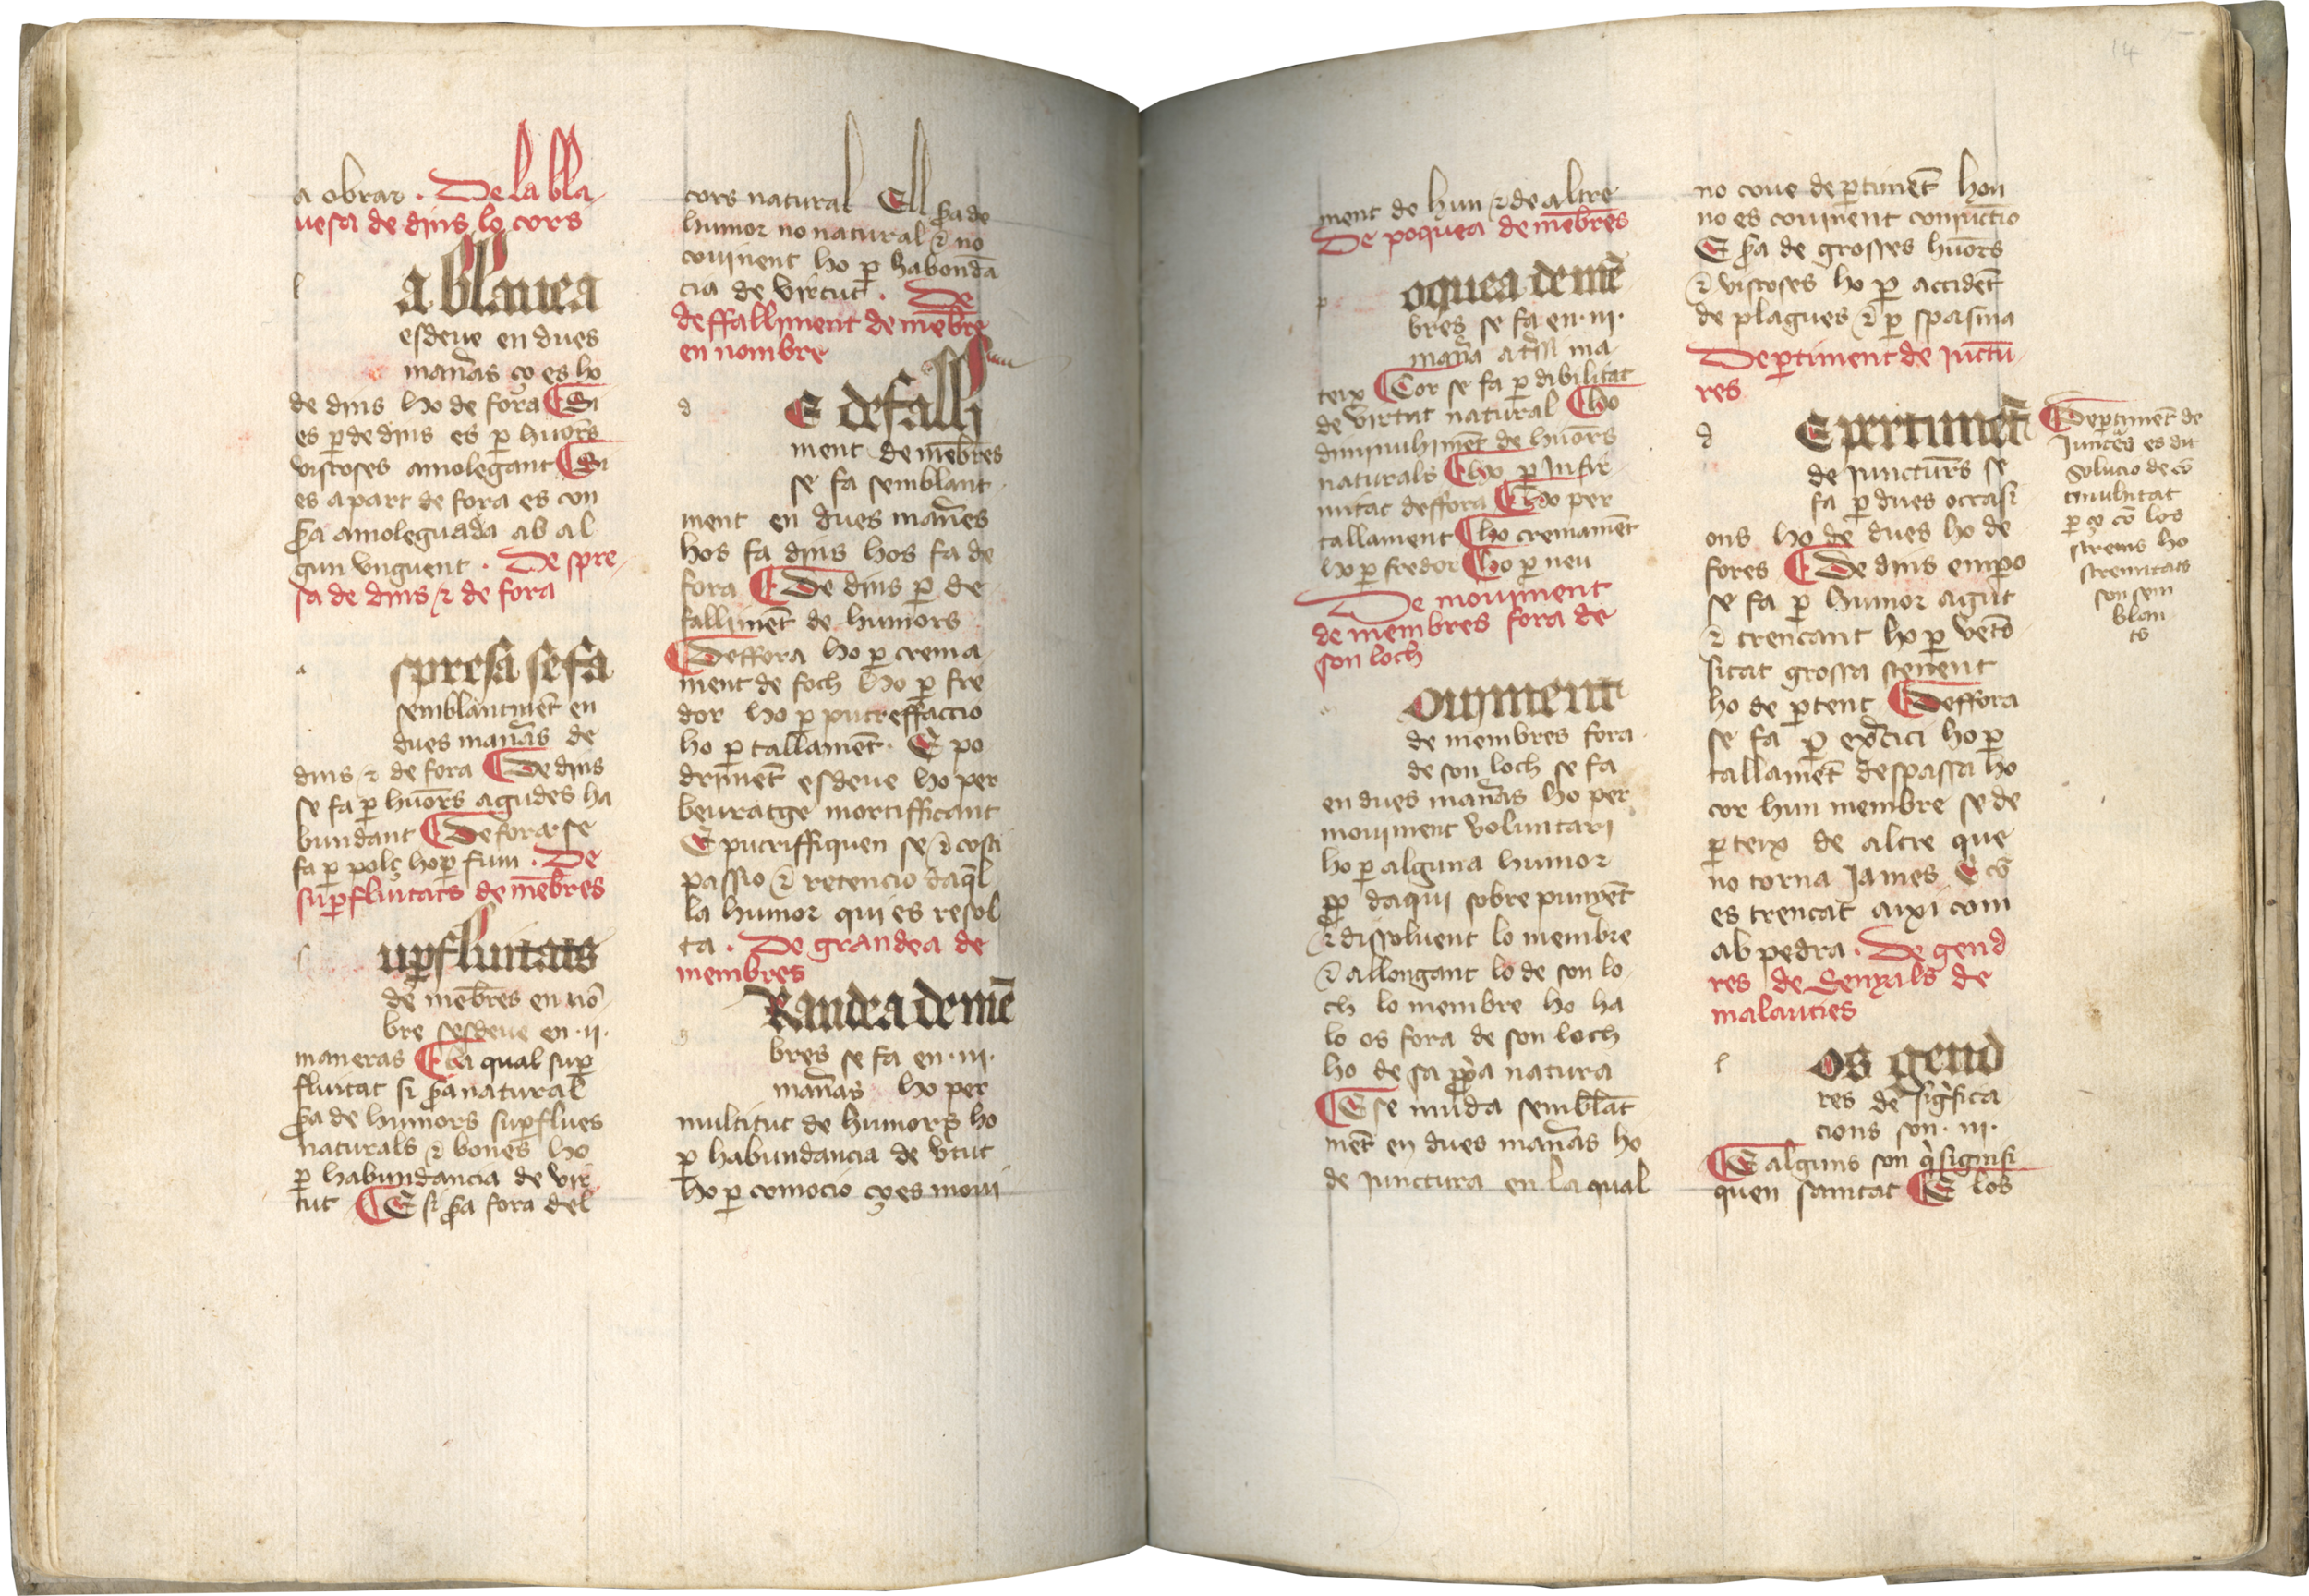 a obrar . De la bla
uesa de dins lo cors
l
a blauea
esdeue en dues
man̄as ço es ho
de dins ho de fora Si
es ꝑ de dins es ꝑ huōrs
viscoses amolegant Si
es a part de fora es con
amoleguada ab al
gun vnguent . De spre
sa de dins ⁊ de fora
a
spresa se fa
semblantmēt en
dues man̄as de
dins ⁊ de fora De dins
se fa ꝑ huōrs agudes ha
bundant De fora se
fa ꝑ polç ho ꝑ fum . De
suꝑfluitats de mēbres
uꝑfluitats
de mēbres en nō
bre sesdeue en .ii.
maneras la qual suꝑ
fluitat si natural
de humors suꝑflues
naturals ⁊ bones ho
ꝑ habundancia de vir
tut E si fora del
cors natural Ell de
humor no natural ⁊ no
couinent ho ꝑ habondā
cia de virtut . De
deffalliment de mēbre
en nombre
d
E defalli
ment de mēbres
se fa semblant
ment en dues man̄es
hos fa dins hos fa de
fora De dins ꝑ de
fallimēt de humors
Deffora ho ꝑ crema
ment de foch ho ꝑ fre
dor ho ꝑ putreffaccio
ho ꝑ tallamēt . E po
drimēt esdeue ho per
beuratge mortifficant
E putriffiquen se ⁊
passio ⁊ retencio daq̄l
la humor qui es resol
ta . De grandea de
membres
g
Randea de mē
bres se fa en .iii.
man̄as ho per
multitut de humors ho
ꝑ habundancia de vtut
ho ꝑ comocio ço es moui
14
ment de hun ⁊ de altre
De poquea de mēbres
p
oquea de mē
bres se fa en .iii.
man̄a ma
teix Cor se fa ꝑ dibilitat
de virtut natural Ho
diminuhimēt de huōrs
naturals Ho ꝑ Infir
mitat deffora Ho per
tallament Ho cremamēt
ho ꝑ fredor Ho ꝑ neu
De mouiment
de membres fora de
son loch
ouiment
de membres fora
de son loch se fa
en dues man̄as ho per
mouiment voluntari
ho ꝑ alguna humor
daqui sobre punyēt
⁊ dissoluent lo membre
⁊ allongant lo de son lo
ch lo membre ho ha
lo os fora de son loch
ho de sa natura
E se muda semblāt
mēt en dues man̄as ho
de iunctura en la qual
no coue deꝑtimēt hon
no es couinent coniūctio
E de grosses huōrs
⁊ viscoses ho ꝑ accidēt
de plagues ⁊ ꝑ spasma
Deꝑtiment de iunctu
res
d
E pertimēt
de iuncturs se
fa ꝑ dues occasi
ons ho de dues ho de
fores De dins
se fa ꝑ humor agut
⁊ trencant ho ꝑ vēto
sitat grossa stenent
ho de ꝑtent Deffora
se fa ꝑ ho ꝑ
tallamēt despassa ho
cor hun membre se de
ꝑteix de altre que
no torna iames E cō
es trencat axi com
ab pedra . De gend
res de senyals de
malauties
l
os gend
res de sigfica
cions son .iii.
E alguns son q̇ signifi
quen sanitat E los
Deꝑtimēt de
iunctes es dit
Solucio de cō
tinuhitat
ꝑ ço cō los
strems ho
stremitats
son sem
blan
ts